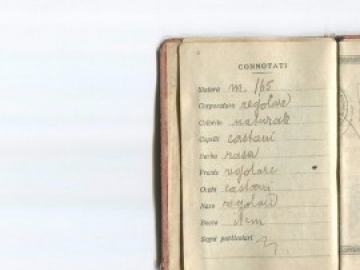 CONNOTATI
Statura m. 165
Corporatura regolare
Colorito naturale
Capelli castani
Barba rasa
Fronte regolare
Occhi castani
Naso regolare
Bocca id m
Segni particolari